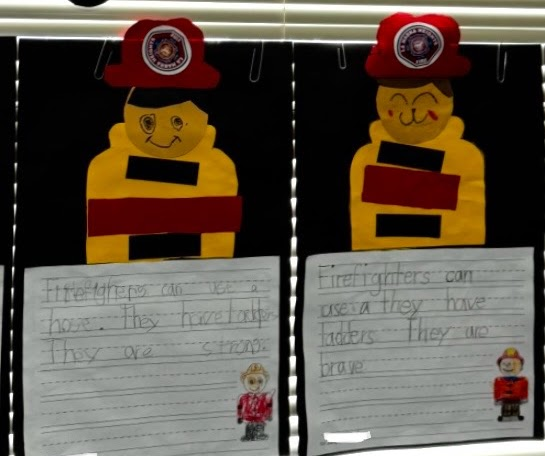 Firefighters can use a
hose. They have ladders.
They are strong.
Firefighters can
use a they have
ladders They are
brave